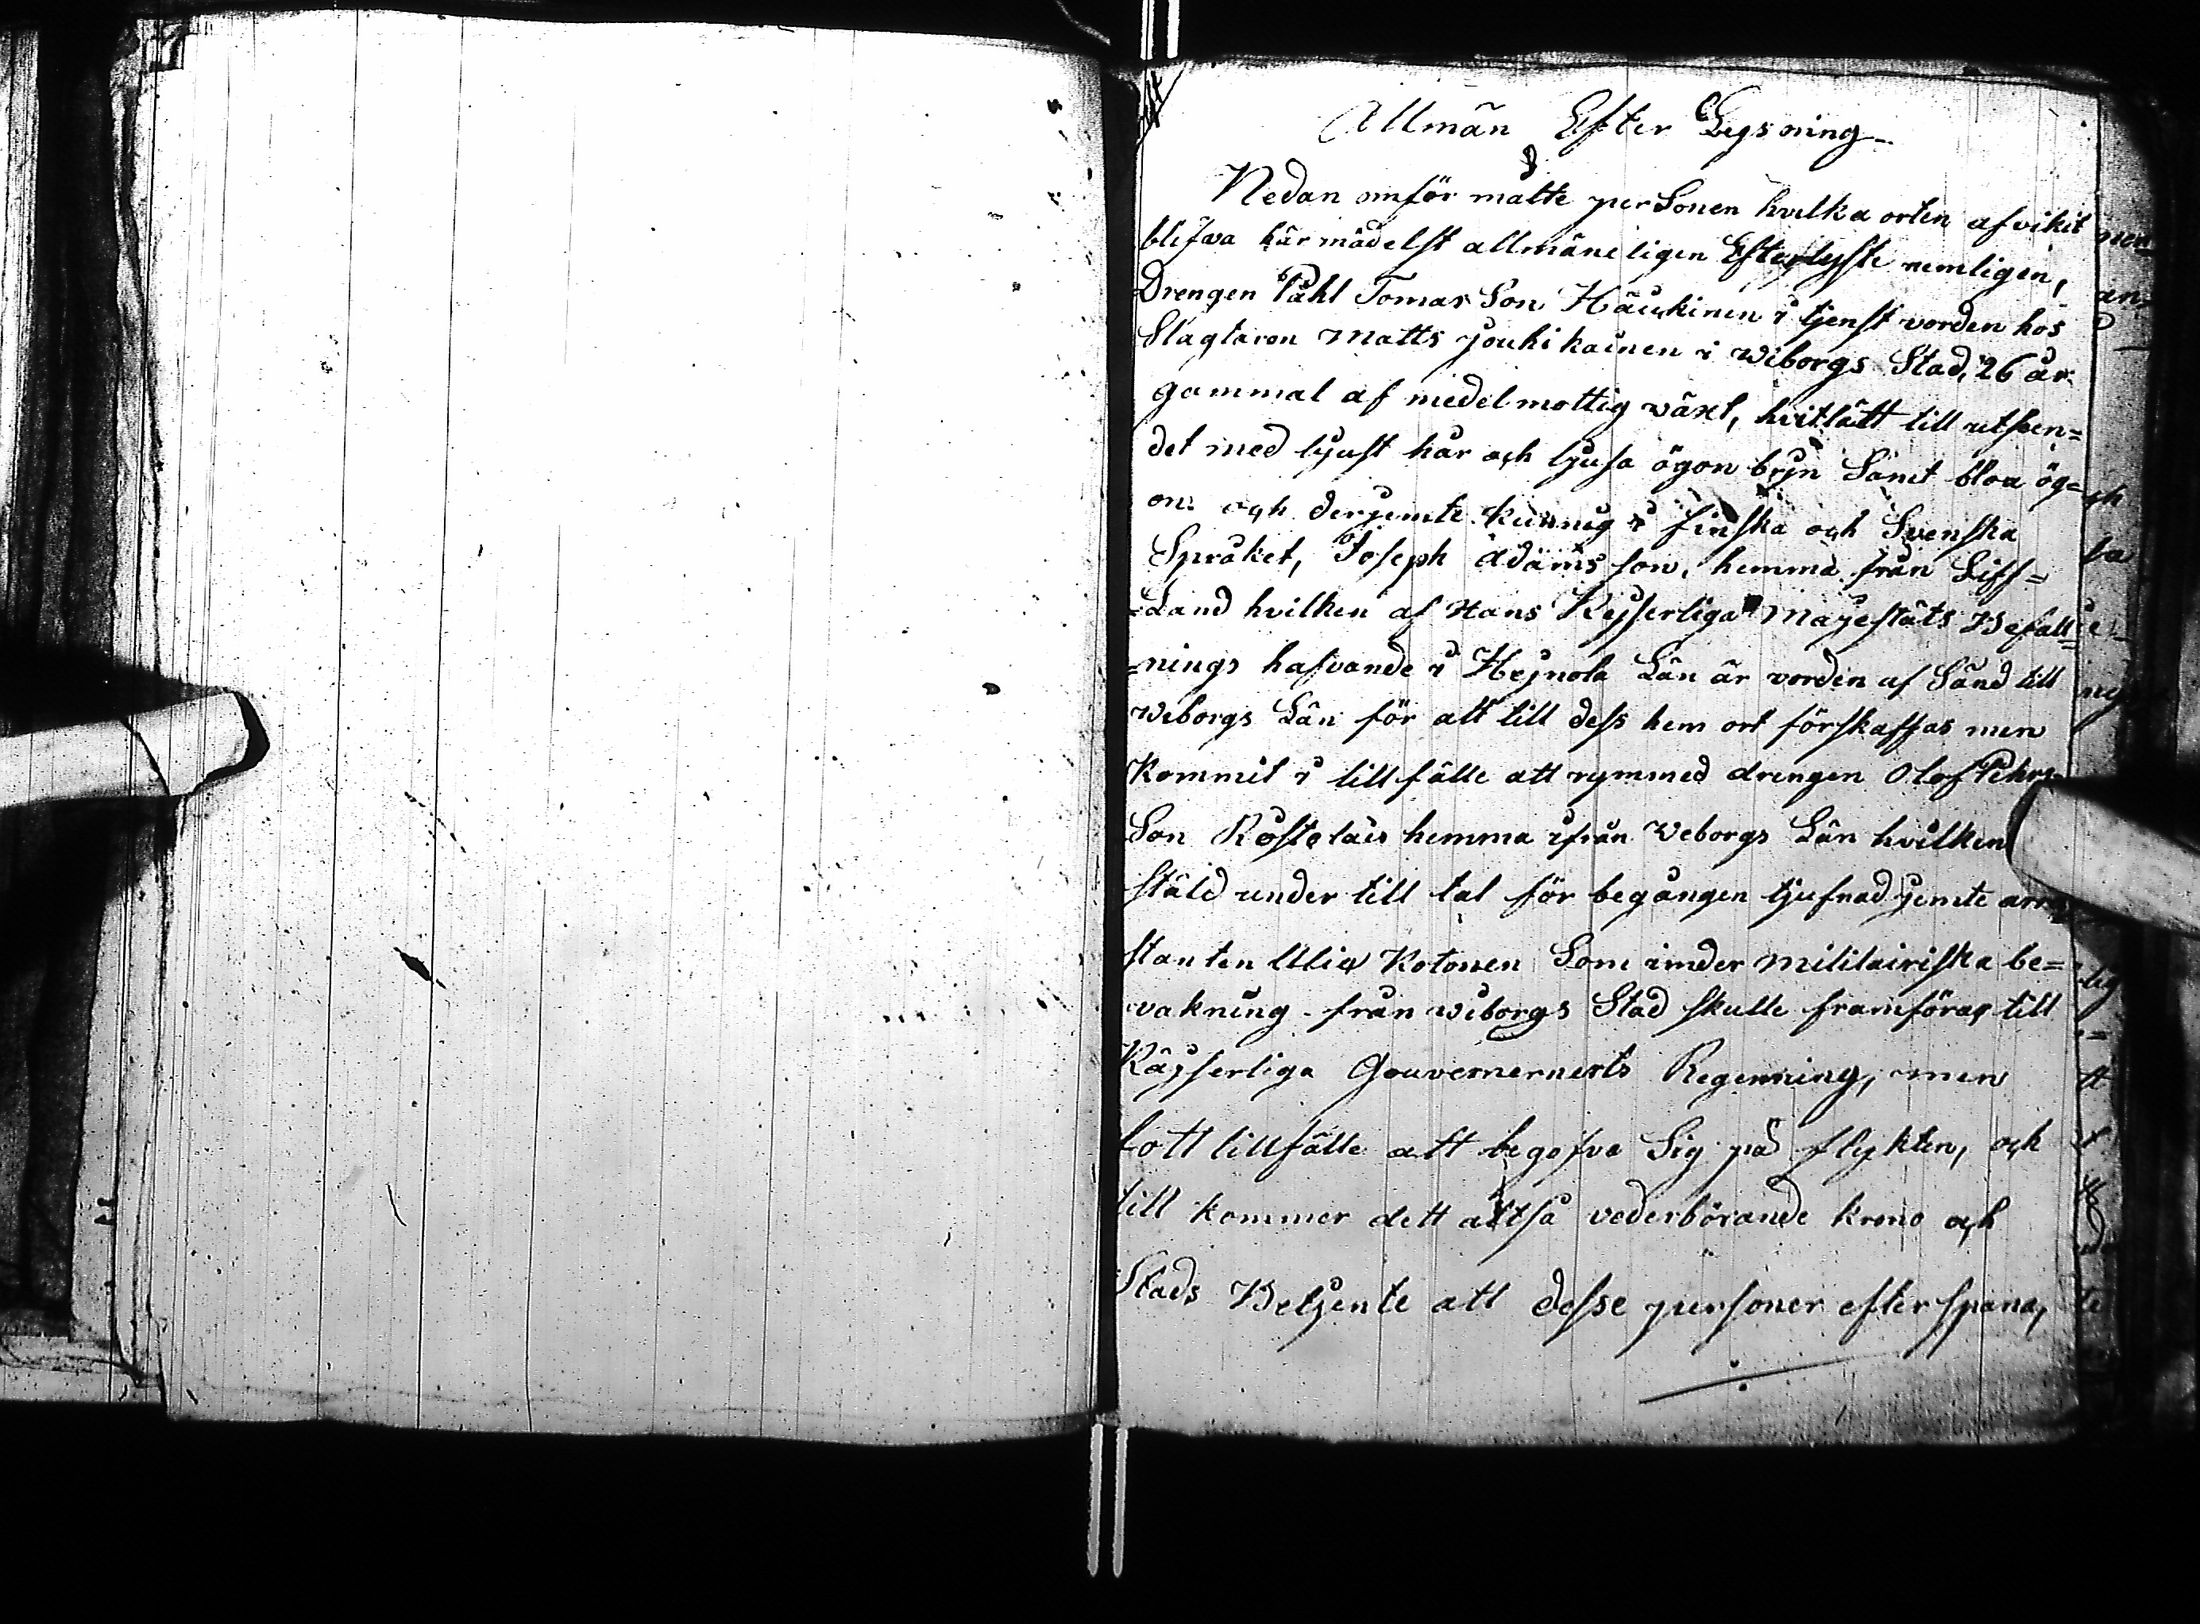 Allmän Efter Lysning
Nedan omför mälte perSonen hvilka orten afvikit
blifwa härmädelst allmäneligen Efterlyste nemligen,
Drengen Påhl Tomas Son Häükinen i tjenst vorden hos
Slagtaren Matts jouhikainen i Wiborgs Stad, 26 år
gammal af medelmottig växt, hvitlätt till utseen=
det med ljust hår och ljusa ögon bryn Samt bloa ög=
on och derjemte kunnig i finska och Svenska
Språket, Joseph Adams son, hemma från Liff=
=Land hvilken af Hans Keyserliga Mayestäts Befall=
=nings hafvande i Heynola Län är vorden af Sänd till
Wiborgs Län för att till dess hem ort förskaffas men
Kommit i tillfälle att rymmed drengen Olof Pehrs
Son Rostelais hemma ifrån Weborgs Län hvilken
ställd under till tal för begången tjufnad jemte arre
stanten Kotonen Som under militairiska be=
vakning från Wiborgs Stad skulle framföras till
Käyserliga Gouvernernerts Regenning, men
fott tillfälle att begofva Sig på flykten, och
till kommer dett altså vederbörande krono och
Stads Betjente att desse personer efterspana,